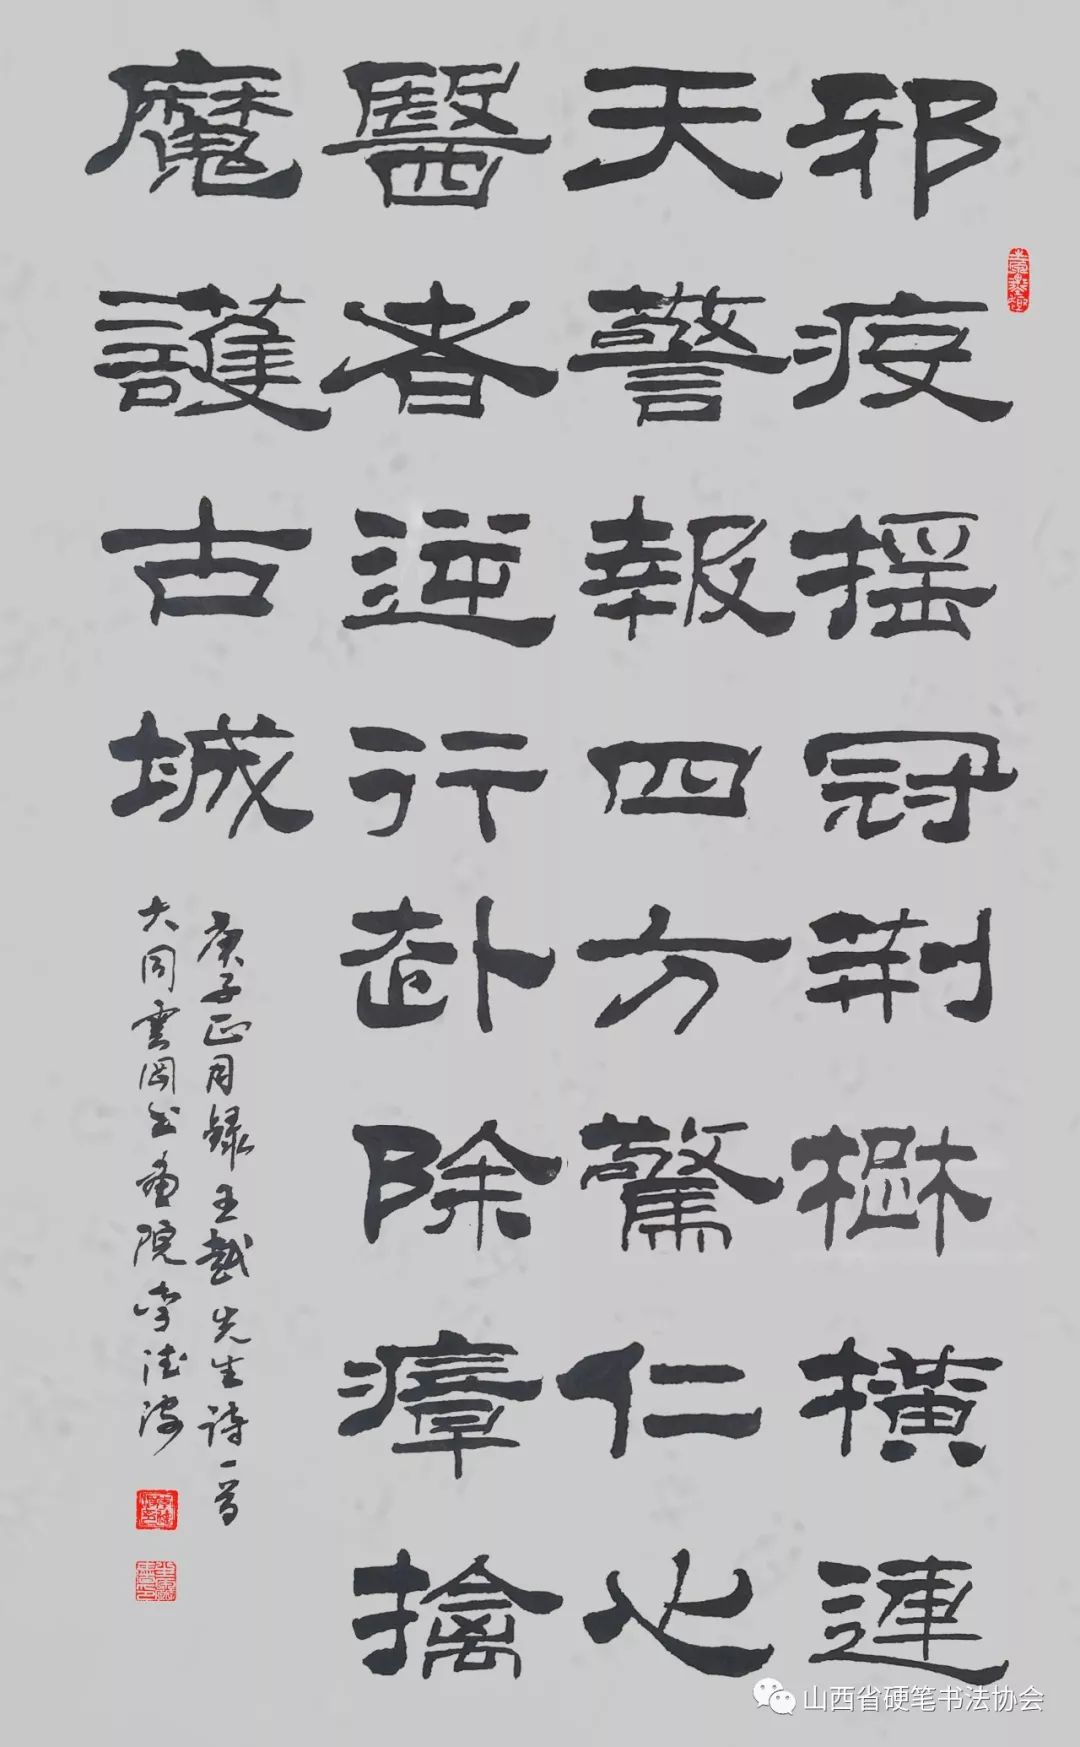 邪疫摇冠荆楚横連
天警報四方驚仁心
醫者逆行赴除瘴擒
魔護古城
庚子正月録王越先生诗一首
大同雲岡书画院李
山西省硬笔书法协会